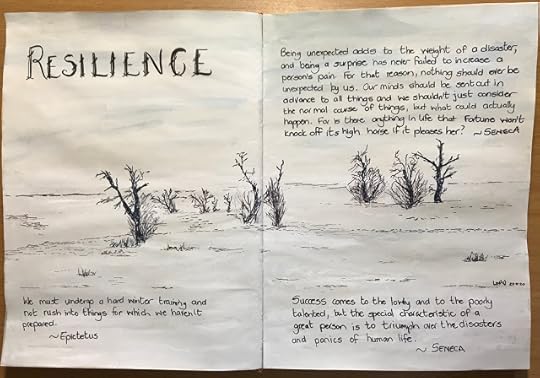 RESILIENCE
Being unexpected adds to the weight of a disaster,
and being a surprise has never failed to increase a
person's pain. For that reason, nothing should ever be
unexpected by us. Our minds should be sent out in
advance to all things and we shouldn't just consider
the normal course of things, but what could actually
happen. For is there anything in life that Fortune won't
knock off its high horse if it pleases her? ~ SENECA
We must undergo a hard winter training and
not rush into things for which we haven't
prepared.
~ Epictetus
Success comes to the lowly and to the poorly
talented, but the special characteristic of a
great person is to triumph over the disasters
and panics of human life.
~ SENECA